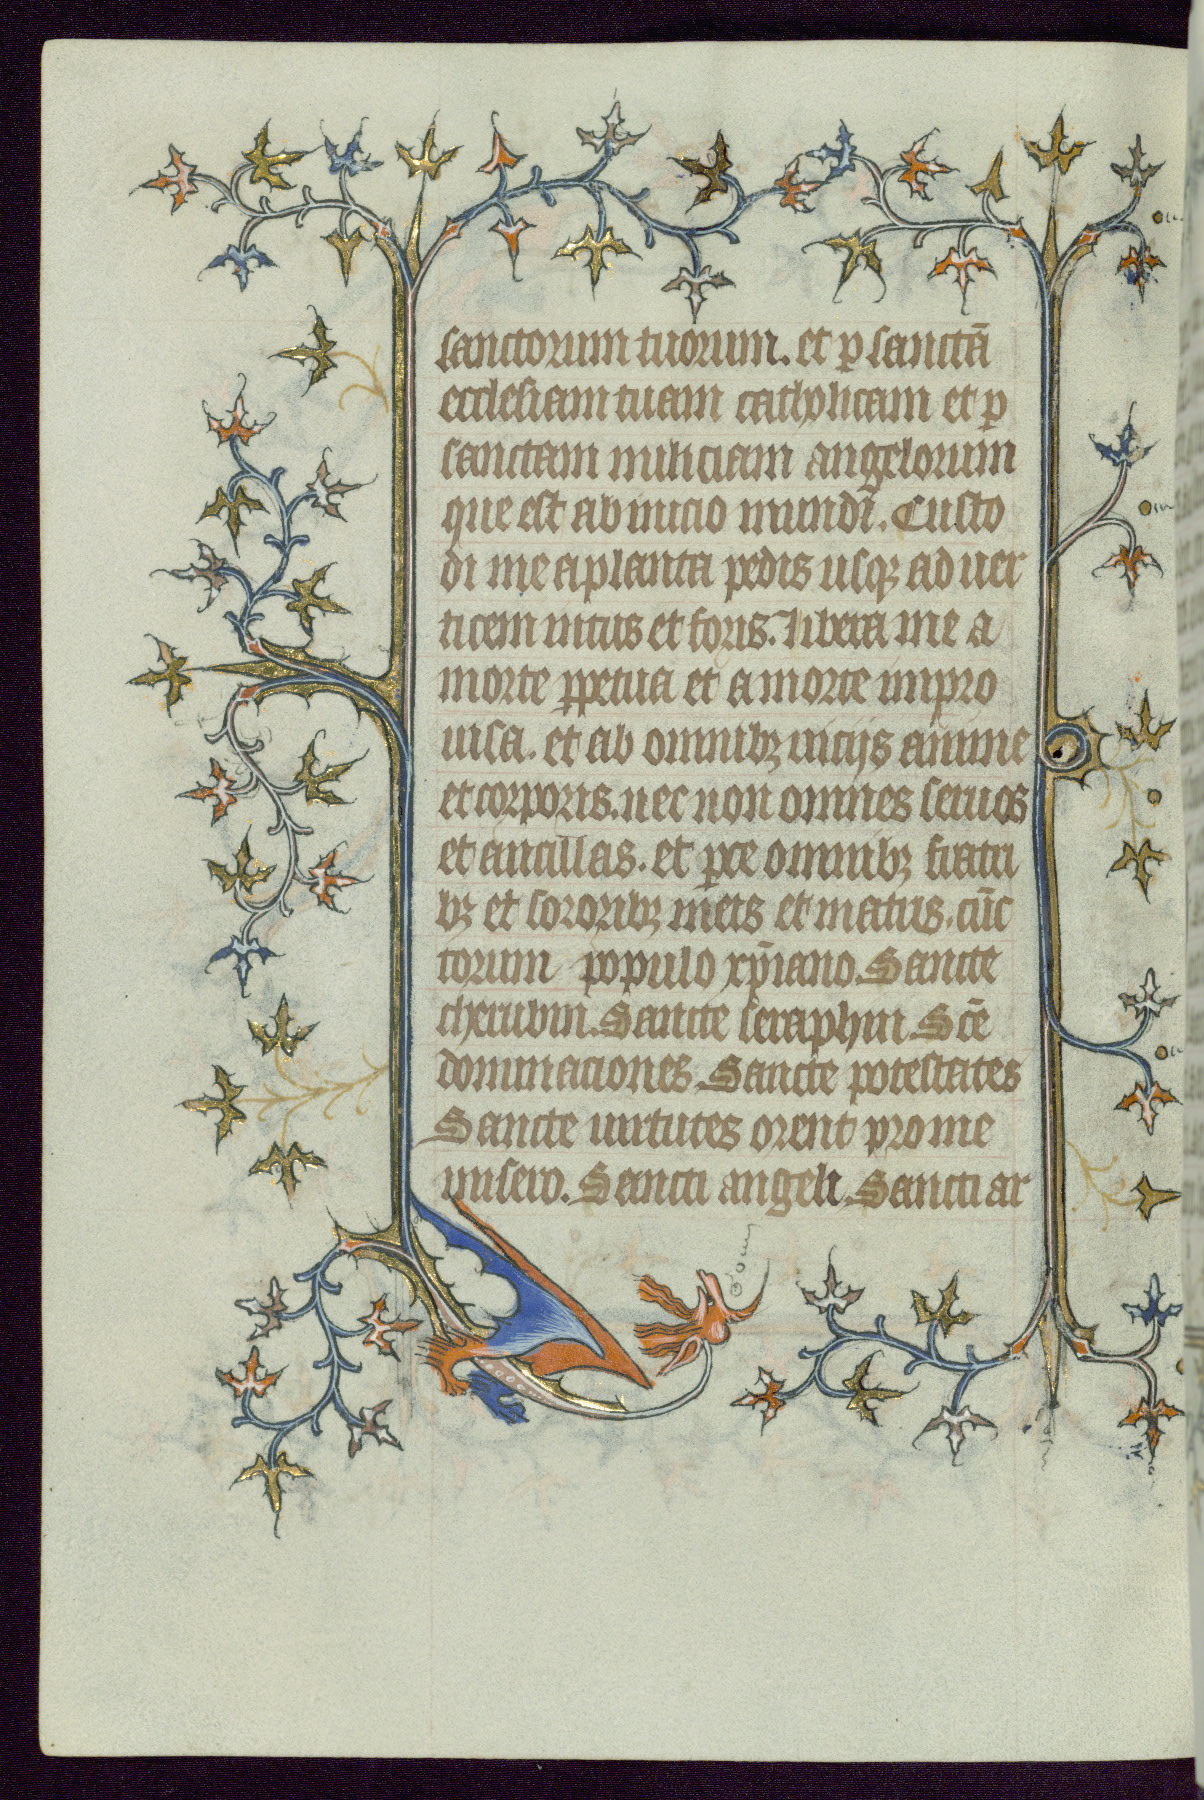 sanctorum tuorum. et p sanctā
ecclesiam tuam catholicam et p
sanctam miliciam angelorum
que est ab inicio mundi. Custo
di me a planta pedis usqꝫ ad uer
ticem intus et foris. libera me a
morte ꝑpetua et a morte impro
uisa. et ab omnibꝫ uiciis anime
et corporis. nec non omnes seruos
et ancillas. et pce omnibꝫ fratri
bꝫ et sororibꝫ meis et matris. cūc
torum populo xp̄iano. Sancte
cherubin. Sancte seraphin. Scē
dominaciones. Sancte potestates
Sancte uirtutes orent pro me
misero. Sancti angeli. Sancti ar